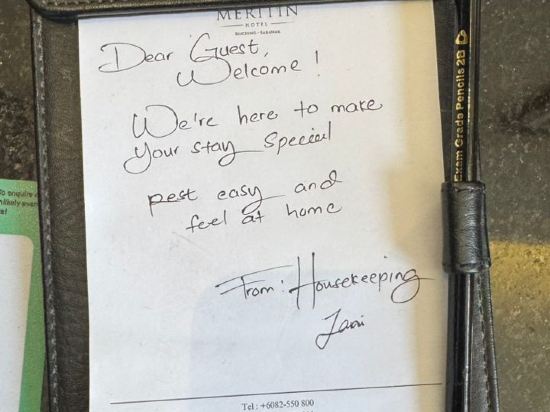 MERITIN
HOTEL
KUCHING - SARAWAK
Dear Guest,
Welcome !
We're here to make
your stay special
rest easy and
feel at home
From : Housekeeping
Tel : +6082-550 800
Exam Grade Pencils 2B
to enquire